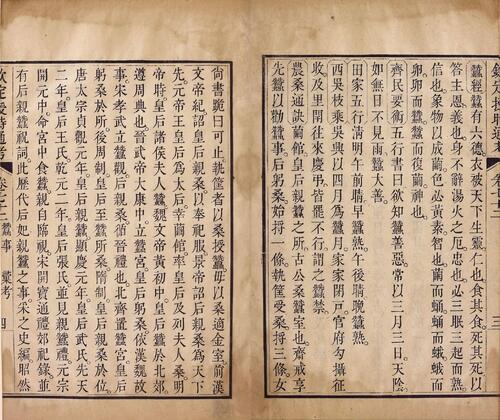 欽定授時通考 卷七十二 三
蠶經蠶有六德衣被天下生靈仁也食其食死其死以
答主恩義也身不辭湯火之厄忠也必三眠三起而熟
信也象物以成繭色必黃素智也繭而蛹蛹而蛾蛾而
卵卵而復蠶神也
齊民要術五行書曰欲知蠶善惡常以三月三日天陰
如無日不見雨蠶大善
田家五行清明午前晴早蠶熟午後晴晚蠶熟
西吳枝乘吳興以四月爲蠶月家家閉戶官府勾攝徵
收及里閈往來慶弔皆罷不行謂之蠶禁
農桑通訣繭館皇后親蠶之所古公桑蠶室也齋戒享
先蠶以勸蠶事后躬桑始捋一條執筐受桑捋三條女
尚書跪曰可止執筐者以桑授蠶母以桑適金室前漢
文帝紀詔皇后親桑以奉祀服景帝詔后親桑爲天下
先元帝王皇后爲太后幸繭館率皇后及列夫人桑明
帝時皇后諸侯夫人蠶魏文帝黃初中皇后蠶於北郊
遵周典也晉武帝太康中立蠶宮皇后躬桑依漢魏故
事宋孝武立蠶觀后親桑循晉禮也北齊置蠶宮皇后
躬桑於所後周制皇后至蠶所桑隋制皇后親桑於位
唐太宗貞觀元年皇后親蠶顯慶元年皇后武氏先天
二年皇后王氏乾元二年皇后張氏並見親蠶禮元宗
開元中命宮中食蠶親自臨視宋開寶通禮郊祀錄並
有后親蠶祝詞此歷代后妃親蠶之事采之史編昭然
欽定授時通考 卷七十二 蠶事 彙考 四